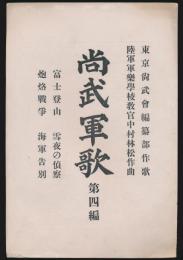 東京尙武會編纂部作歌
陸軍軍樂學校敎官中村林松作曲
尚武軍歌
第四編
富士登山
雪夜の偵察
炮烙戰爭
海軍告別